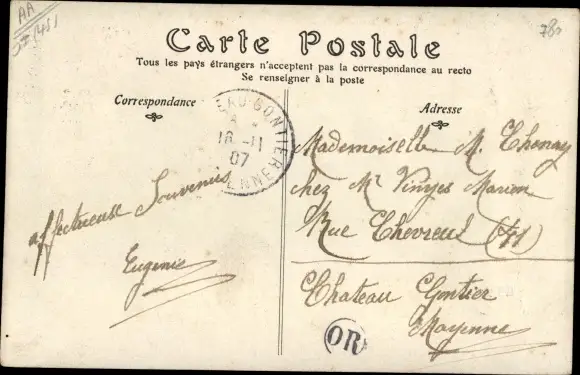 AA
780
Carte Postale
Tous les pays étrangers n'acceptent pas la correspondance au recto
Se renseigner à la poste
Correspondance
Adresse
EAU-GONTIER
16 -11
07
ENNE
Mademoiselle M. Thenay
chez Mr Vinyes Marion
Rue Chevreul
Chateau Gontier
Mayenne
affectueux Souvenirs
Eugenie
OR